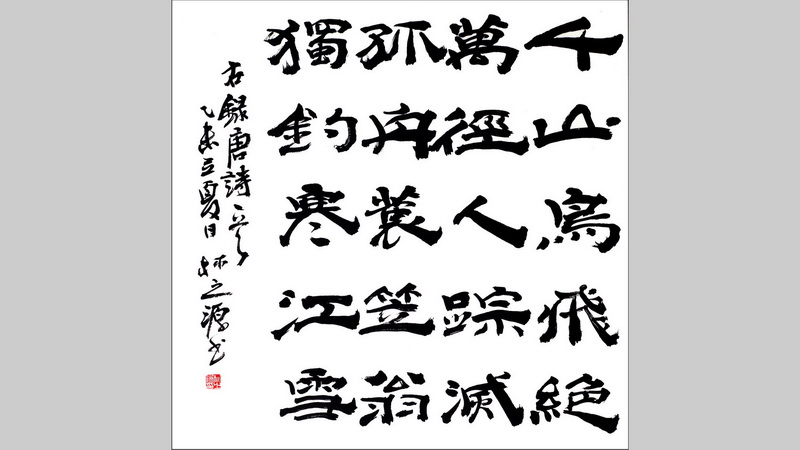 千山鳥飛絶
萬徑人踪滅
孤舟蓑笠翁
獨釣寒江雪
右録唐詩一首
乙未立夏日 之源书